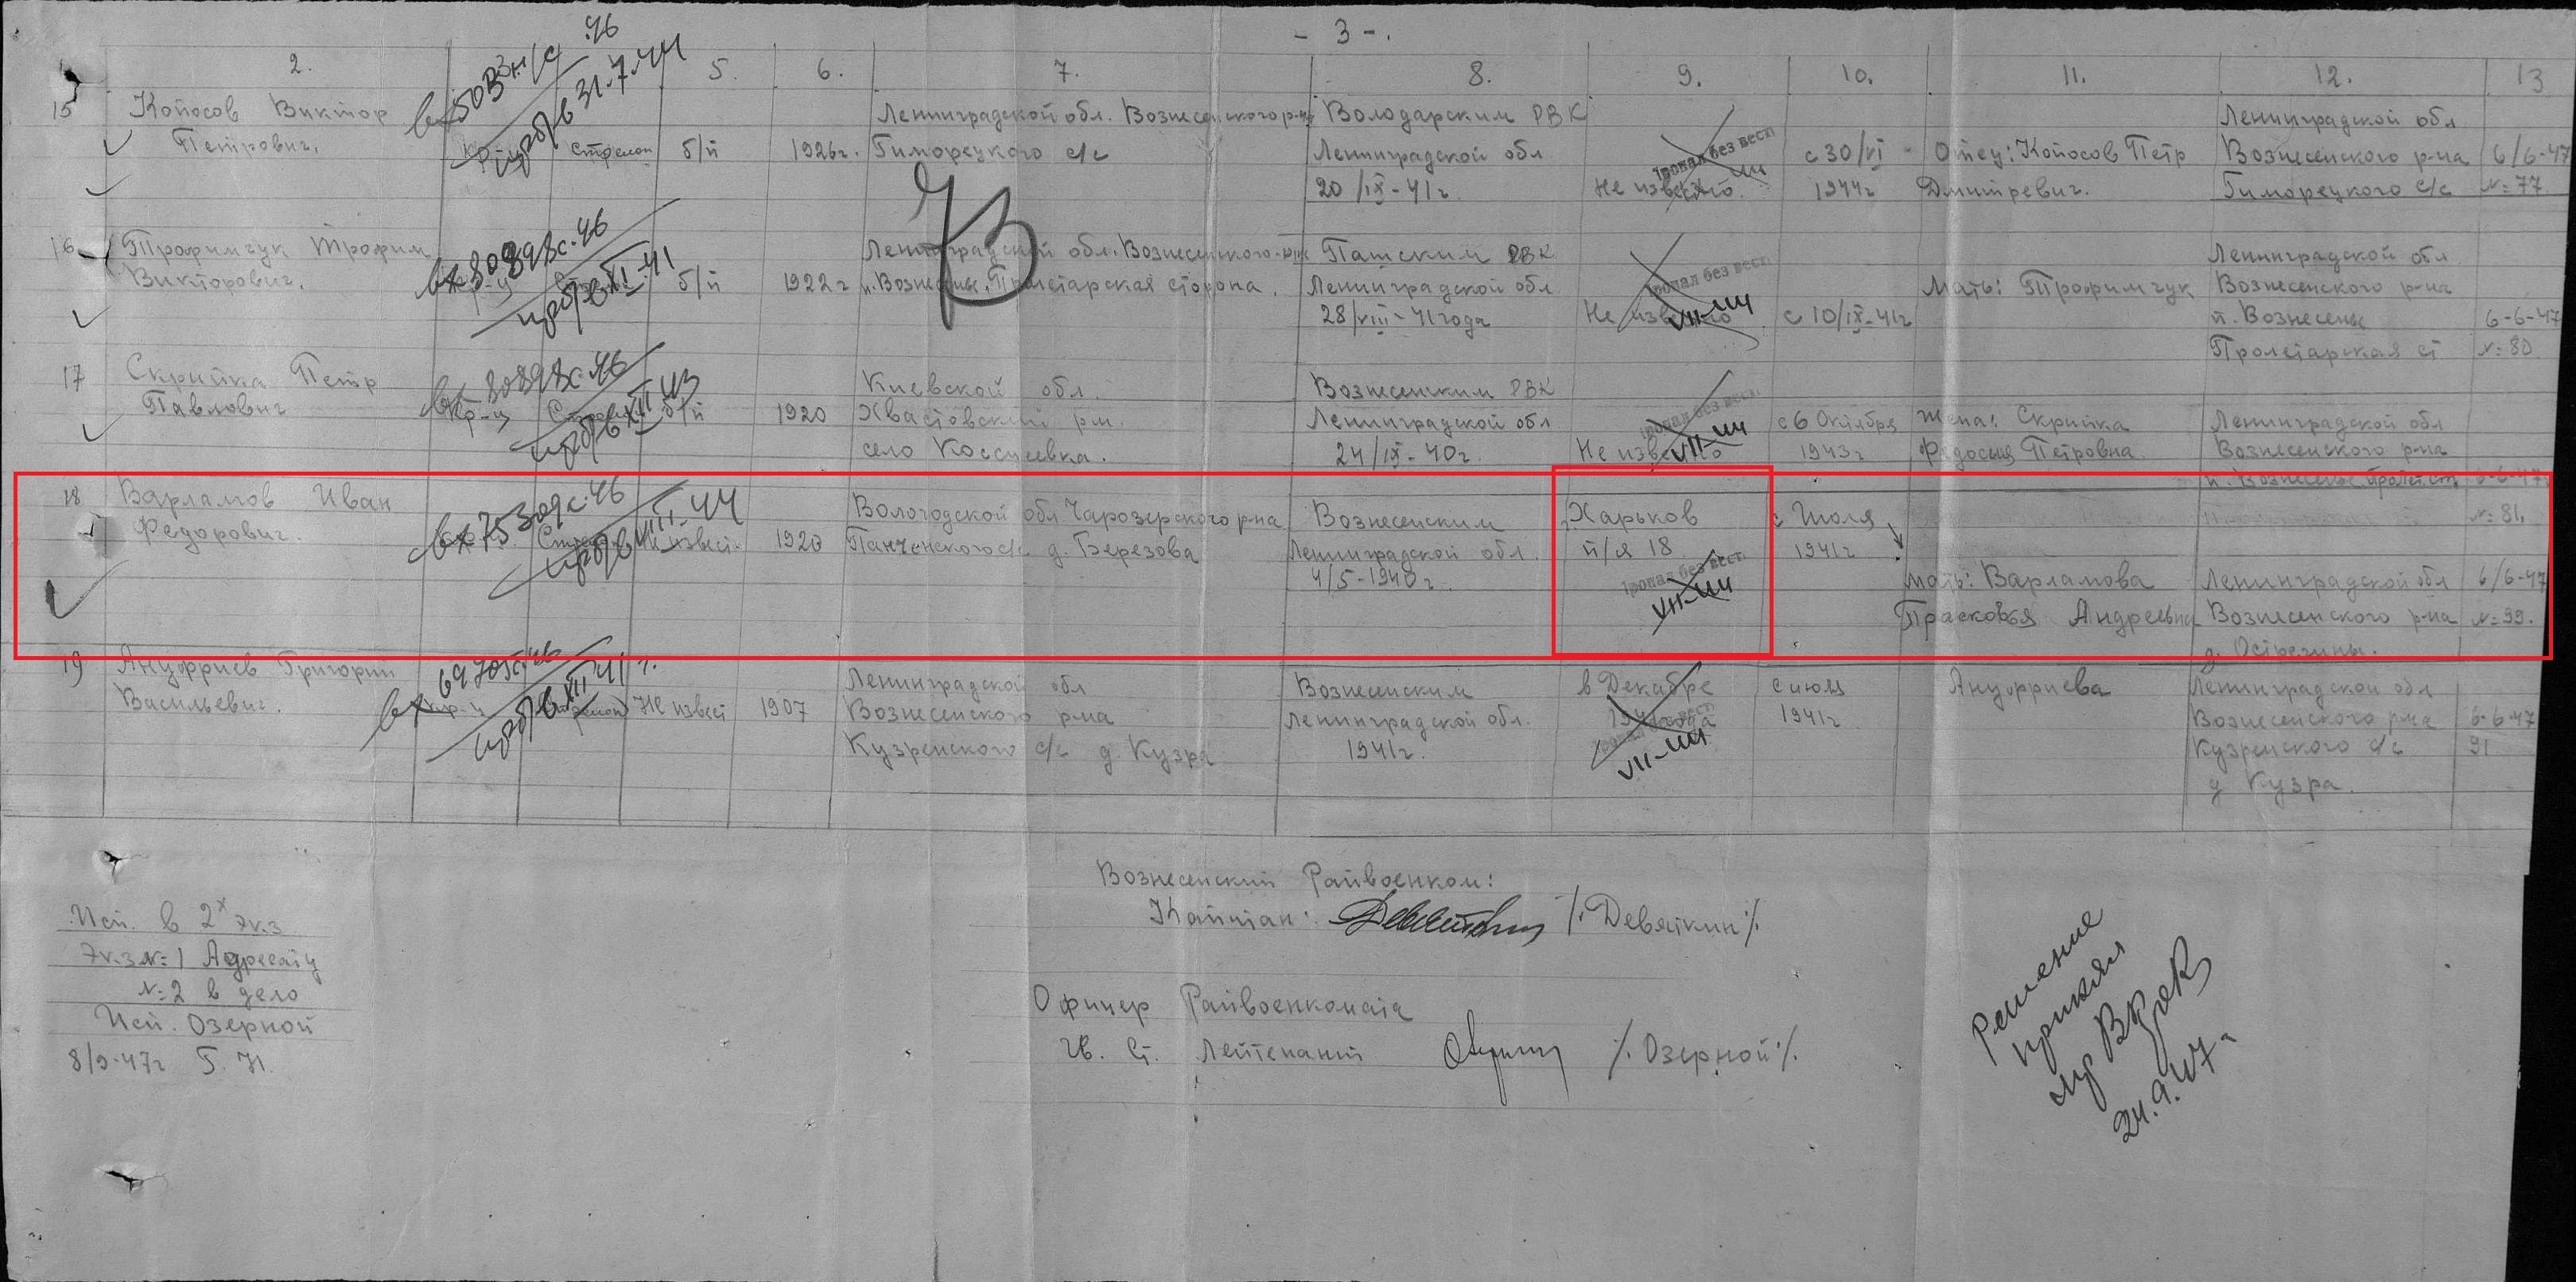 - 3 -.
2. 5. 6. 7. 8. 9. 10. 11. 12. 13
15 Копосов Виктор Ленинградской обл. Вознесенского р-на Володарским РВК Ленинградской обл
Петрович. стрелок б/п 1926г. Гиморецкого с/с Ленинградской обл Пропал без вести с 30/VI Отец: Копосов Петр Вознесенского р-на 6/6-47
20/IX-41г. Не известно. 1944г Дмитревич. Гиморецкого с/с №=77
вх 5033н/с 46
приоб в 31.7.44
16 Трофимчук Трофим Ленинградской обл. Вознесенского р-на Пашским РВК Ленинградской обл
Викторович. б/п 1922г п. Вознесенье, Пролетарская сторона. Ленинградской обл Пропал без вести Мать: Трофимчук Вознесенского р-на
28/VIII-41 года Не известно VII-44 с 10/IX-41г п. Вознесенье 6-6-47
Пролетарская ст №=80
вх 80898с.46
XI-41
17 Скрипка Петр Киевской обл. Вознесенким РВК
Павлович кр-ц б/п 1920 Хвастовский р-н. Ленинградской обл Пропал без вести с 6 Октября Жена: Скрипка Ленинградской обл
село Коссиевка. 24/IX-40г. Не известно VII-44 1943г Федосья Петровна. Вознесенского р-на
п. Вознесенье 6-6-47
вх 80898с.46
XII 43
18 Варламов Иван Вологодской обл Чарозерского р-на Вознесенским Харьков с Июля №=81.
Федорович. 1920 Панченского с/с д. Березова Ленинградской обл. п/я 18 1941г
4/5-1940г. Пропал без вести VII-44 мать: Варламова Ленинградской обл 6/6-47
Прасковья Андреевна Вознесенского р-на №=99.
д. Острегины.
вх 75309с.46
VIII-44
19 Ануфриев Григорий Ленинградской обл Вознесенским в Декабре с июля Ануфриева Ленинградской обл
Васильевич. кр-ц Не извест 1907 Вознесенского р-на Ленинградской обл. 1941 года 1941г Вознесенского р-на 6-6-47
Кузренского с/с д. Кузра 1941г. VII-44 Кузренского с/с 91
д Кузра.
XII 41г.
Вознесенский Райвоенком:
Капитан: /. Девяткин ./
Офицер Райвоенкомата
Гв. Ст. Лейтенант /. Озерной ./
Исп. в 2х экз
Экз №=1 Адресату
№=2 в дело
Исп. Озерной
8/9-47г
Решение
принял
24.9.47г